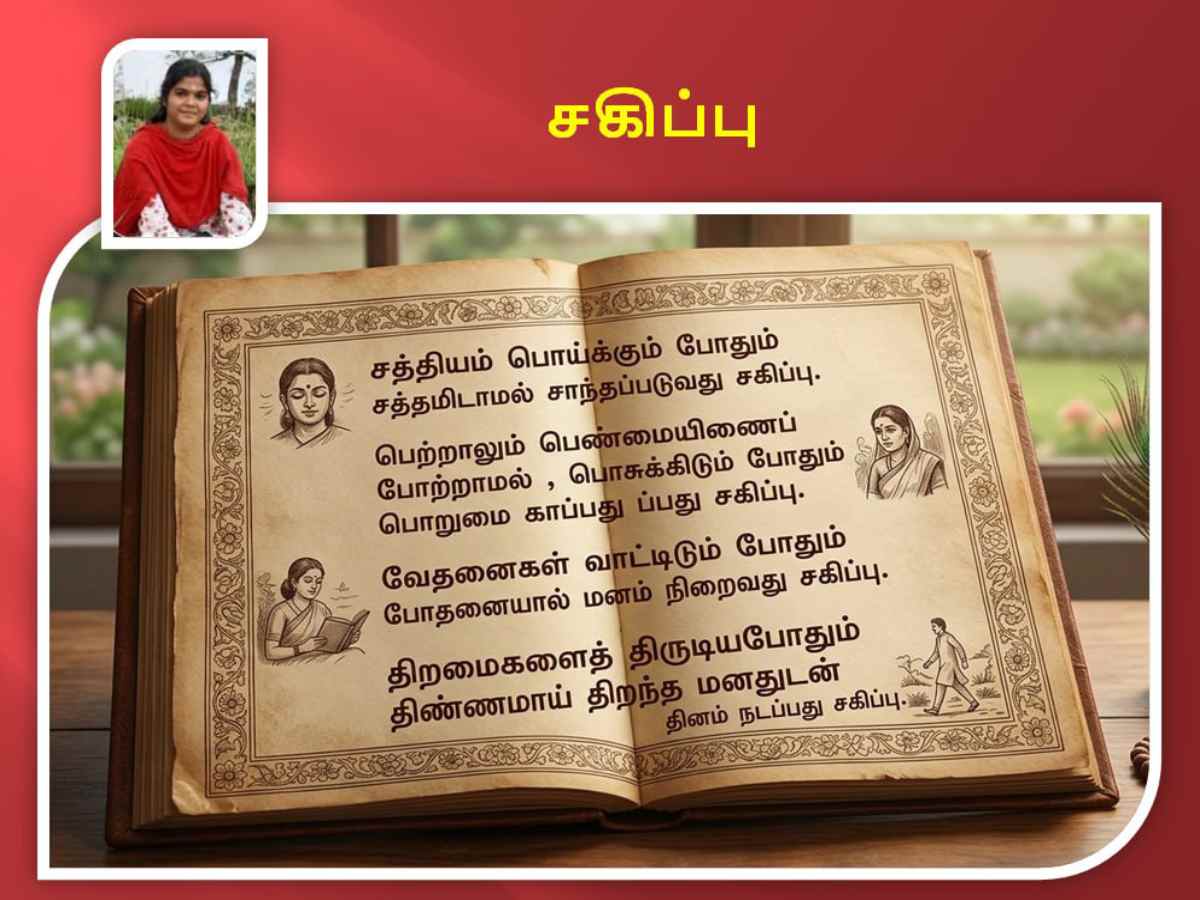 சகிப்பு
சத்தியம் பொய்க்கும் போதும்
சத்தமிடாமல் சாந்தப்படுவது சகிப்பு.
பெற்றாலும் பெண்மையிணைப்
போற்றாமல் , பொசுக்கிடும் போதும்
பொறுமை காப்பது ப்பது சகிப்பு.
வேதனைகள் வாட்டிடும் போதும்
போதனையால் மனம் நிறைவது சகிப்பு.
திறமைகளைத் திருடியபோதும்
திண்ணமாய் திறந்த மனதுடன்
தினம் நடப்பது சகிப்பு.